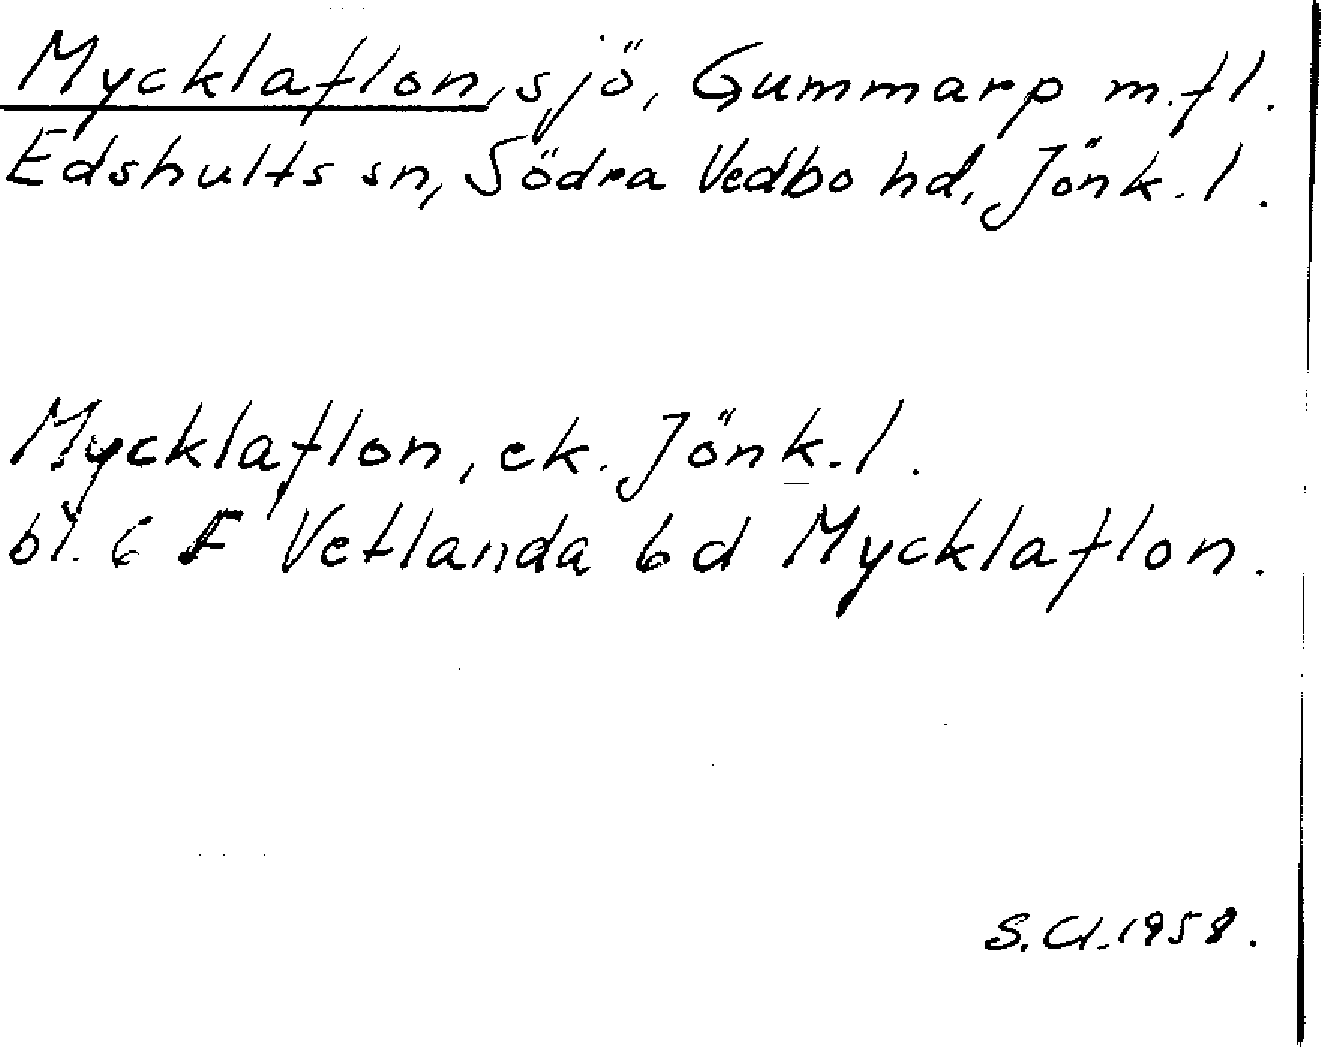 Mycklaflon, sjö, Gummarp m.fl.
Edshults sn, Södra Vedbo hd, Jönk.l.
Mycklaflon, ek. Jönk.l.
bl. 6 F Vetlanda 6d Mycklaflon.
S.Cl. 1958.